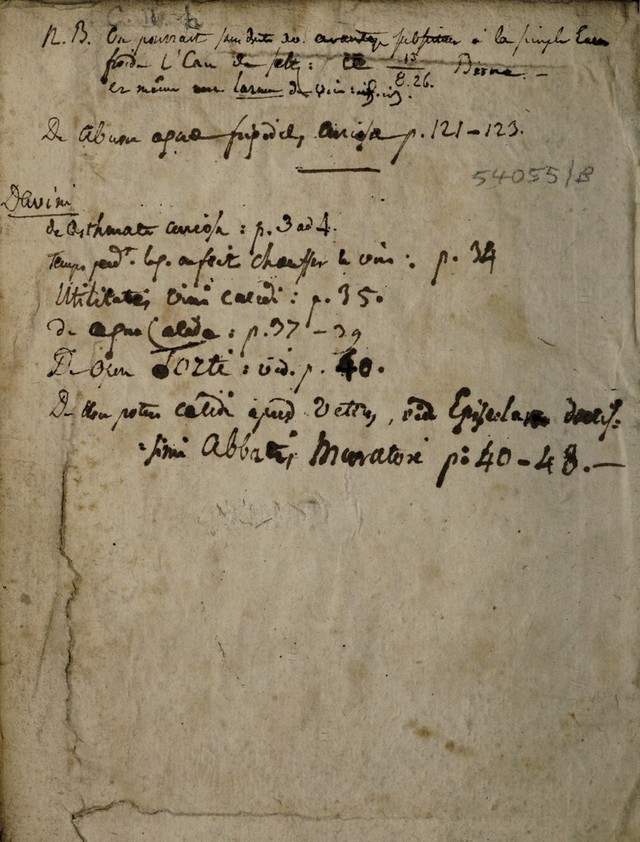 N. B. On pourrait sans doute avec avantage substituer à la simple Eau
froide l'Eau de seltz: le 15/8.26. Berne. —
et même une larme de vin:
De Abusu aquae frigidae, curiosa p. 121-123.
54055/B
Davini
de Asthmate curiosa: p. 3 ad 4.
Temps pend.t leq. on fait chauffer le vin: p. 34
Utilitates vini calidi: p. 35.
de aqua Calida: p. 37-39
De : vid. p. 40.
De potu calidi apud Vetes, vid Epistolam doctis-
-simi Abbatis Muratori p: 40-48. —